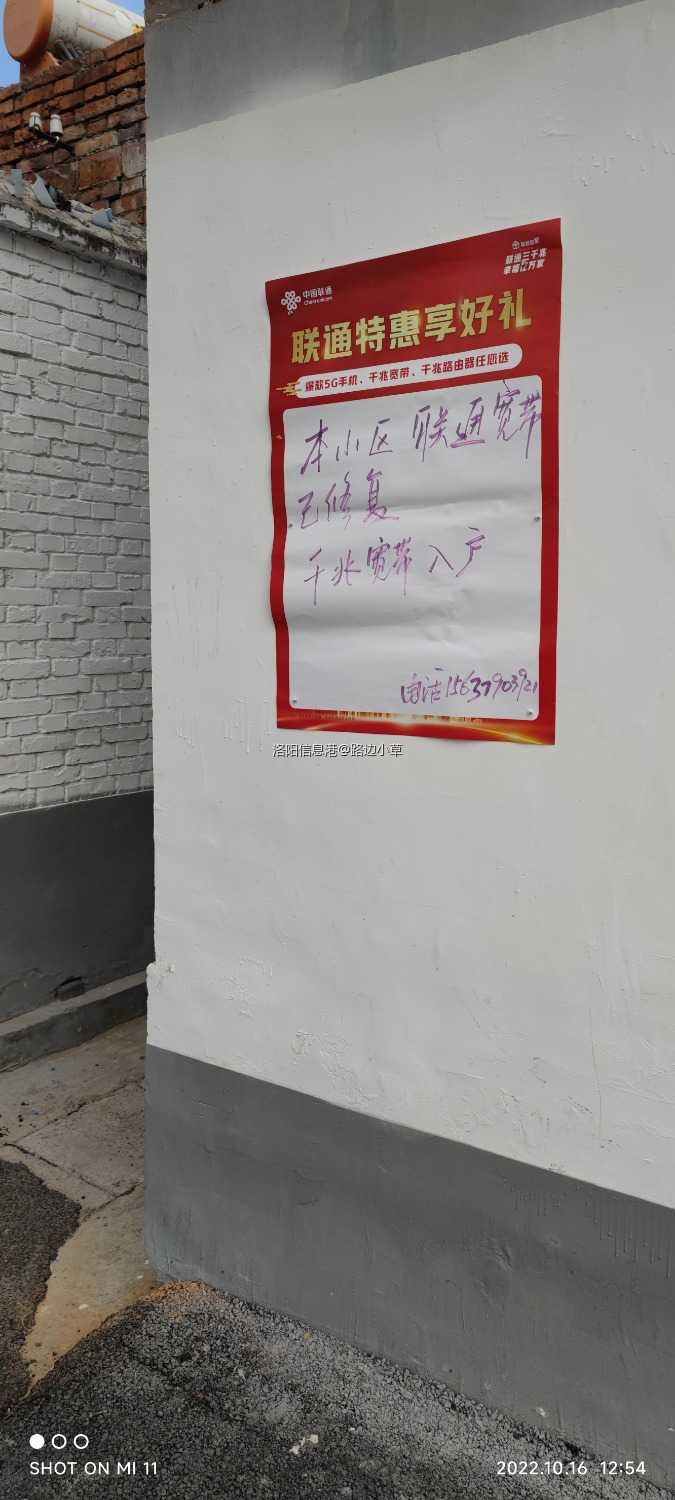 中国联通
China unicom
联通三千兆
幸福立万家
联通特惠享好礼
爆款5G手机、千兆宽带、千兆路由器任您选
本小区联通宽带
已修复
千兆宽带入户
电话15637903921
洛阳信息港@路边小草
SHOT ON MI 11
2022.10.16 12:54